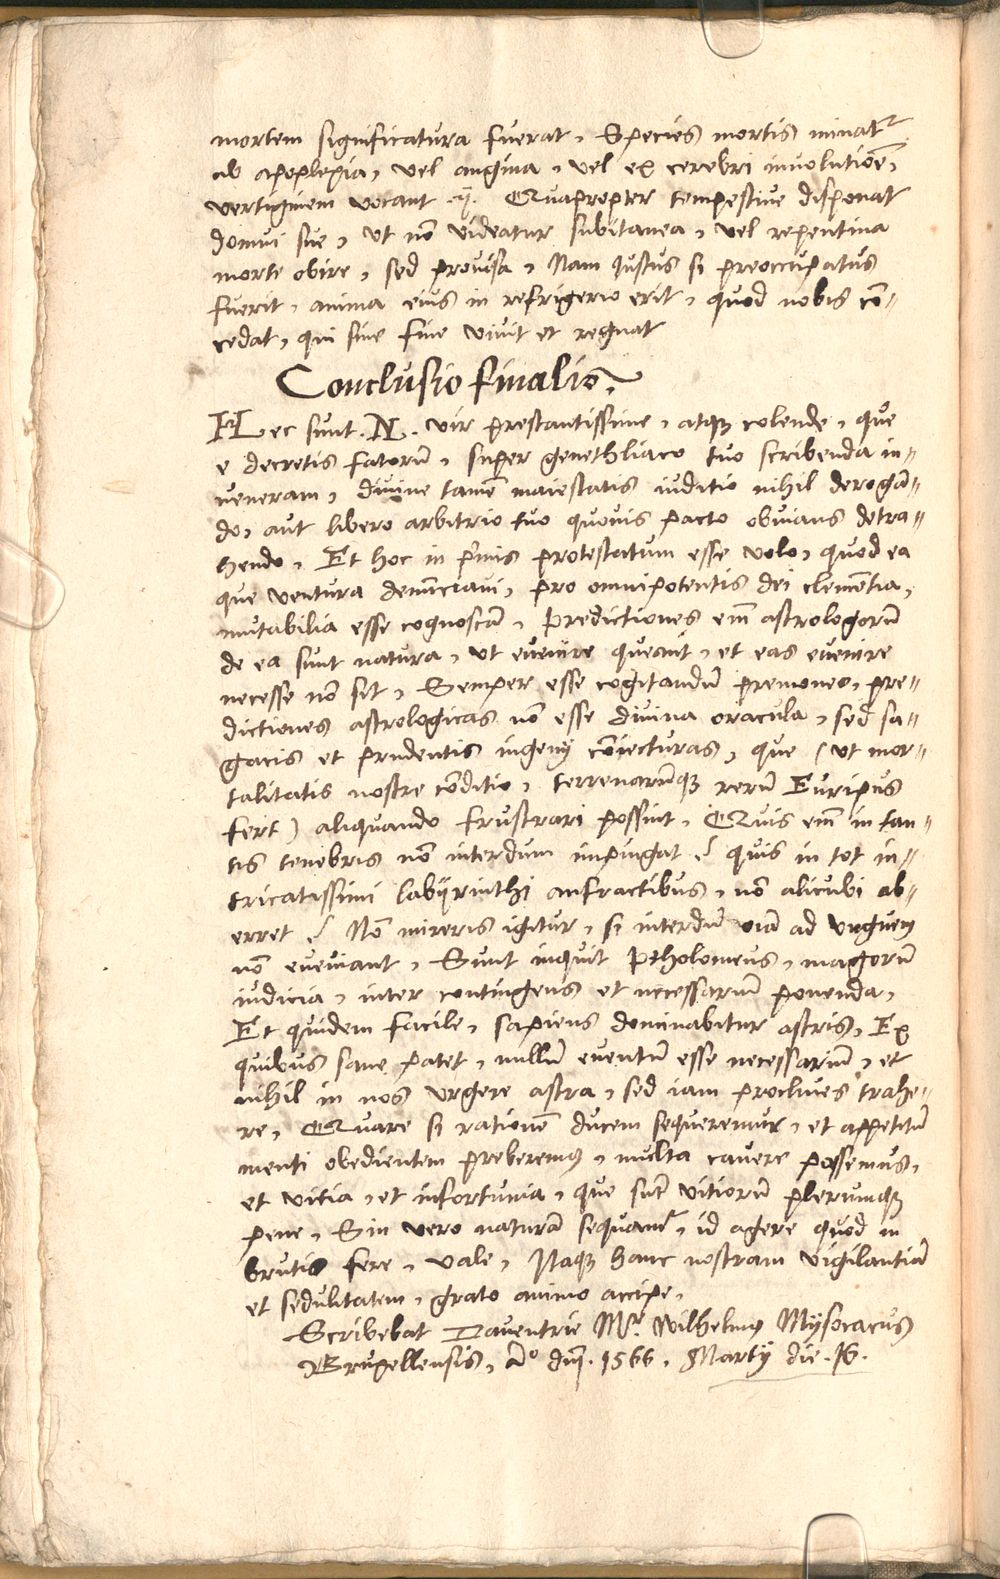 mortem significatura fuerat, Species mortis minatr
ab apoplexia, vel angina, vel ex cerebri involutiōe,
vertiginem vocant. Quapropter tempestive disponat
domui sue, ut nō videatur subitanea, vel repentina
morte obire, sed provisa, Nam Justus si preoccupatus
fuerit, anima eius in refrigerio erit, quod nobis cō-
cedat, qui sine fine vivit et regnat
Conclusio finalis.
Hec sunt .N. vir prestantissime, atq; colende, que
e decretis fatorū, super genethliaco tuo scribenda in-
veneram, divine tamē maiestatis iuditio nihil derogā-
do, aut libero arbitrio tuo quovis pacto obvians detra-
hendo, Et hoc in p'mis protestatum esse volo, quod ea
que ventura denūciavi, pro omnipotentis dei clemētia,
mutabilia esse cognoscā, Predictiones em̄ astrologorū
de ea sunt natura, ut evenire queant, et eas evenire
necesse non sit, Semper esse cogitandū premoneo, pre-
dictiones astrologicas nō esse divina oracula, sed sa-
gacis et prudentis ingenij cōiecturas, que (ut mor-
talitatis nostre cōditio, terrenarūq; rerū Euripus
fert) aliquando frustrari possint, Quis em̄ in tan-
tis tenebris nō interdum impingat? quis in tot in-
tricatissimi labijrinthi anfractibus, nō alicubi ab-
erret? Nō mireris igitur, si interdū oīa ad unguem
nō eveniant, Sunt inquit Ptholomeus, magorū
iudicia, inter contingens et necessariū ponenda,
Et quidem facile, sapiens dominabitur astris, Ex
quibus sane patet, nullū eventū esse necessariū, et
nihil in nos urgere astra, sed iam proclives trahe-
re, Quare si rationē ducem sequeremur, et appetitū
menti obedientem preberemus, multa cavere possemus,
et vitia, et infortunia, que sūt vitiorū plerumq;
pene, Sin vero naturā sequamr, id agere quod in
brutis fere, vale, Itaq; hanc nostram vigilantiā
et sedulitatem, grato animo accipe,
Scribebat Daventrie Mr. Wilhelmus Mysocacus
Bruxellensis, Ao dni. 1566, Martij die .16.